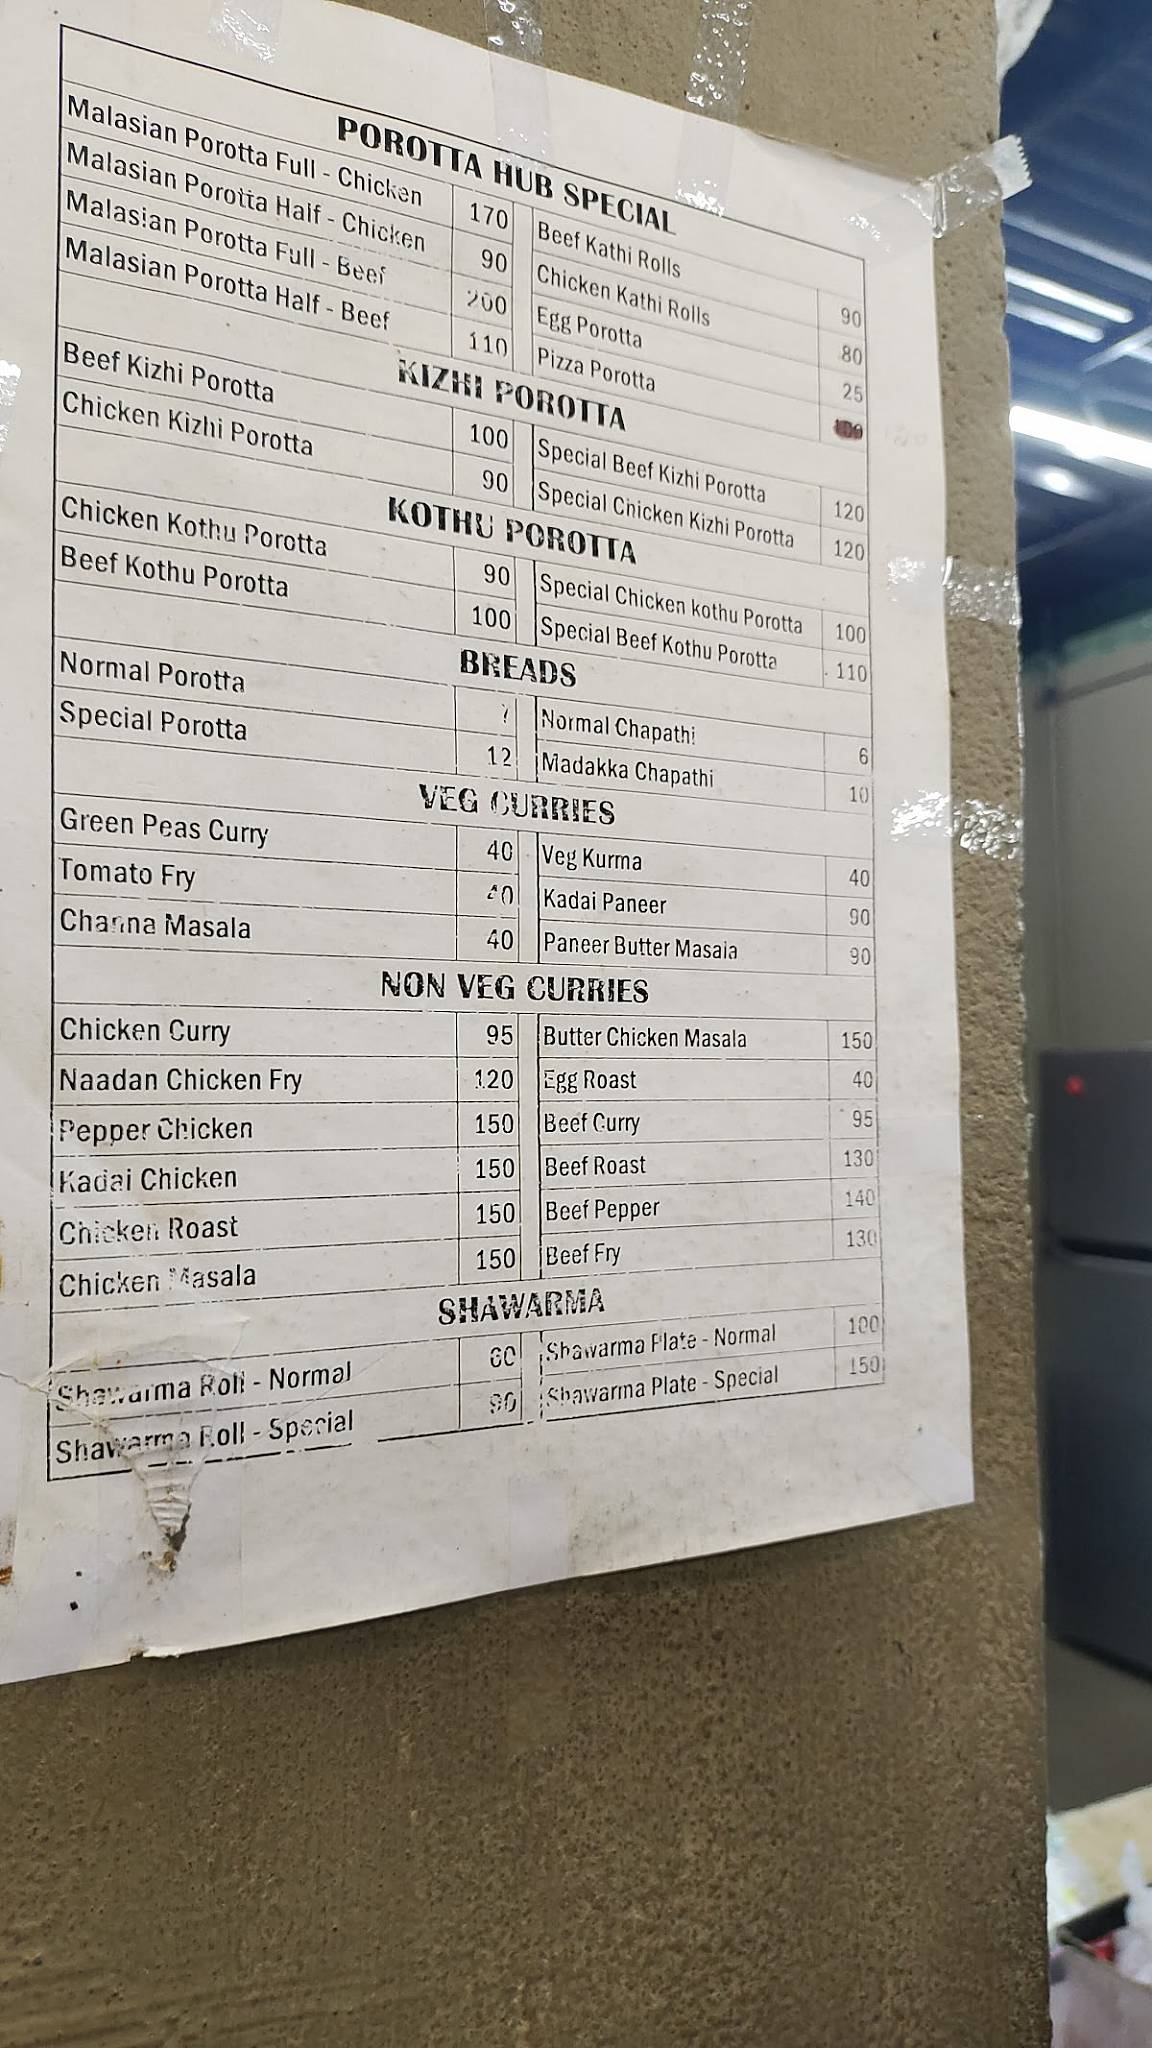 POROTTA HUB SPECIAL
Malasian Porotta Full - Chicken 170 Beef Kathi Rolls 90
Malasian Porotta Half - Chicken 90 Chicken Kathi Rolls 80
Malasian Porotta Full - Beef 200 Egg Porotta 25
Malasian Porotta Half - Beef 110 Pizza Porotta
KIZHI POROTTA
Beef Kizhi Porotta 100 Special Beef Kizhi Porotta 120
Chicken Kizhi Porotta 90 Special Chicken Kizhi Porotta 120
KOTHU POROTTA
Chicken Kothu Porotta 90 Special Chicken kothu Porotta 100
Beef Kothu Porotta 100 Special Beef Kothu Porotta 110
BREADS
Normal Porotta Normal Chapathi 6
Special Porotta 12 Madakka Chapathi 10
VEG CURRIES
Green Peas Curry 40 Veg Kurma 40
Tomato Fry 40 Kadai Paneer 90
Channa Masala 40 Paneer Butter Masala 90
NON VEG CURRIES
Chicken Curry 95 Butter Chicken Masala 150
Naadan Chicken Fry 120 Egg Roast 40
Pepper Chicken 150 Beef Curry 95
Kadai Chicken 150 Beef Roast 130
Chicken Roast 150 Beef Pepper 140
Chicken Masala 150 Beef Fry 130
SHAWARMA
Shawarma Roll - Normal 60 Shawarma Plate - Normal 100
Shawarma Roll - Special 90 Shawarma Plate - Special 150